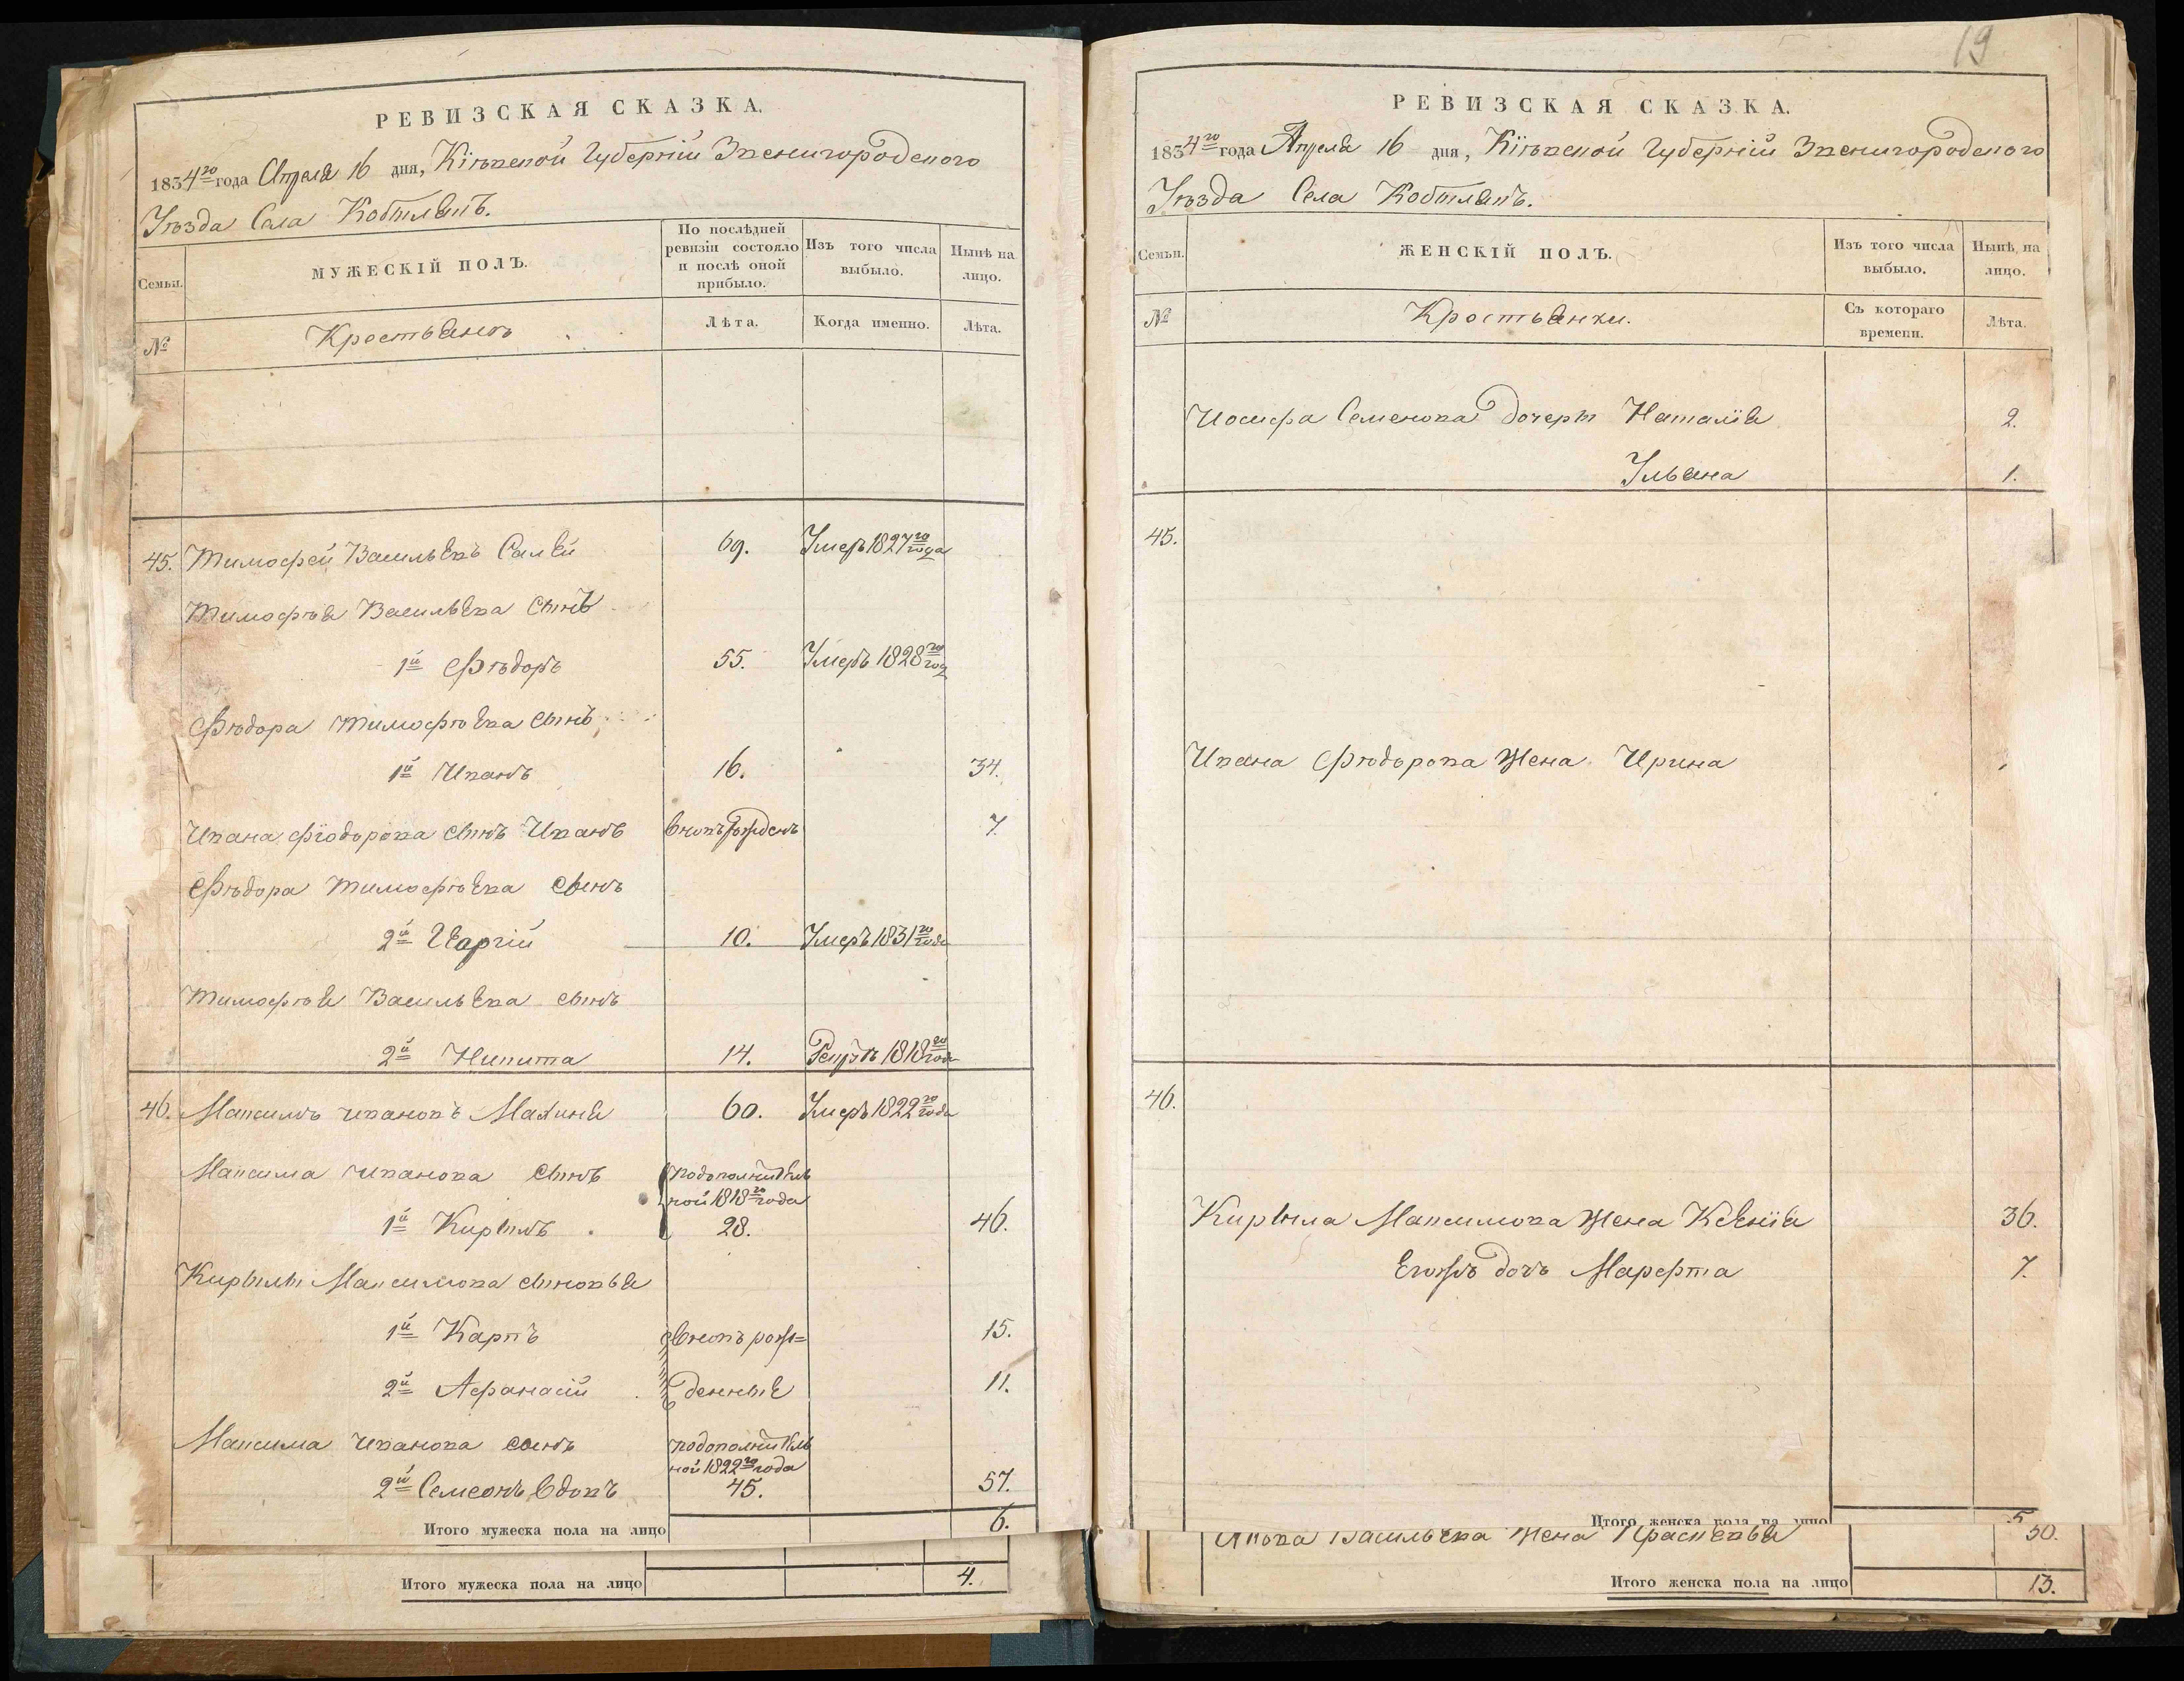 РЕВИЗСКАЯ СКАЗКА.
1834го года Апреля 16 дня, Кіевской Губерніи Звенигородского
Уезда Села
Семьи.
МУЖЕСКІЙ ПОЛЪ.
По послѣдней ревизіи состояло и послѣ оной прибыло.
Изъ того числа выбыло.
Нынѣ на лицо.
№
Крестьянъ
Лѣта.
Когда именно.
Лѣта.
45. Тимофей Васильевъ Салей 69. Умеръ 1827го года
Тимофея Васильева сынъ
1й Фѣдоръ 55. Умеръ 1828го год
Фѣдора Тимофѣева сынъ
1й Иванъ 16. 34.
Ивана Фіодорова сынъ Иванъ вновърожденъ 7.
Фѣдора Тимофѣева сынъ
2й 10. Умеръ 1831го года
Тимофѣя Васильева сынъ
2й Никита 14. 1818го года
46. Максимъ ивановъ 60. Умеръ 1822го года
Максима иванова сынъ подополнитель
ной 1818го года
1й Кирылъ 28. 46.
Кирылы Максимова сыновья
1й Карпъ вновъ рож= 15.
2й Афанасій денные 11.
Максима иванова сынъ подополнитель
ной 1822го года
2й Семеонъ вдовъ 45. 57.
Итого мужеска пола на лицо 6.
Итого мужеска пола на лицо 4.
19
РЕВИЗСКАЯ СКАЗКА.
1834го года Апреля 16 дня, Кіевской Губерніи Звенигородского
Уезда Села
Семьи.
ЖЕНСКІЙ ПОЛЪ.
Изъ того числа выбыло.
Нынѣ на лицо.
№
Крестьянки.
Съ котораго времени.
Лѣта.
Иосифа Семенова дочеры Наталія 2.
Ульяна 1.
45.
Ивана Фѣодорова жена Ирина
46.
Кирыла Максимова жена Ксенія 36.
Егожъ дочъ Марфта 7.
Итого женска пола на лицо 5
Якова Васильева жена Красковья 50.
Итого женска пола на лицо 13.